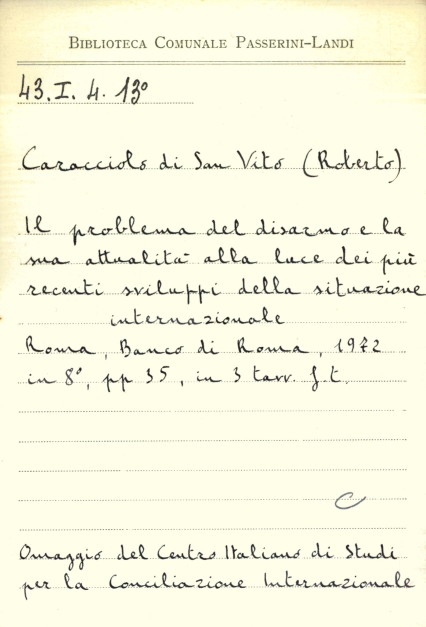 BIBLIOTECA COMUNALE PASSERINI-LANDI
43.I.4.13°
Caracciolo di San Vito (Roberto)
Il problema del disarmo e la
sua attualità alla luce dei più
recenti sviluppi della situazione
internazionale
Roma, Banco di Roma, 1972
in 8°, pp 35, in 3 tavv. f.t.
C
Omaggio del Centro Italiano di Studi
per la Conciliazione Internazionale